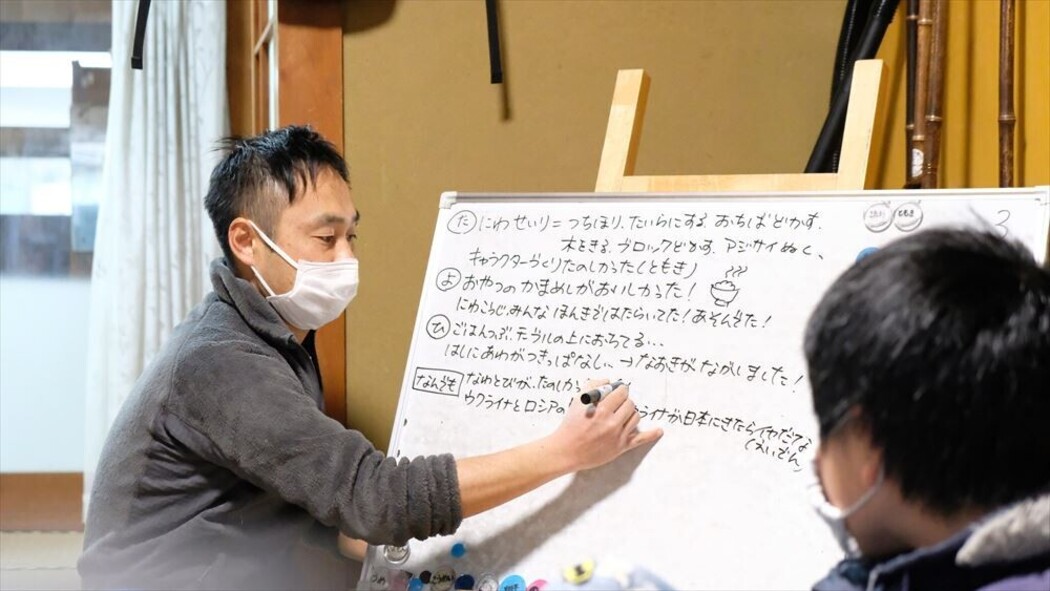 た にわせいり=つちほり、たいらにする、おちばどかす、
木をきる、ブロックどかす、アジサイぬく、
キャラクターづくりたのしかった(ともき)
よ おやつのかまめしがおいしかった!
にわこうじ、みんなほんきではたらいてた!あそんでた!
ひ ごはんつぶ、テーブルの上におちてる...
はしにあわがつきっぱなし...→なおきがながしました!
なんでも なわとびが、たのしかっ
ウクライナとロシアの ライナが日本にきたらイヤだな
ももき
3